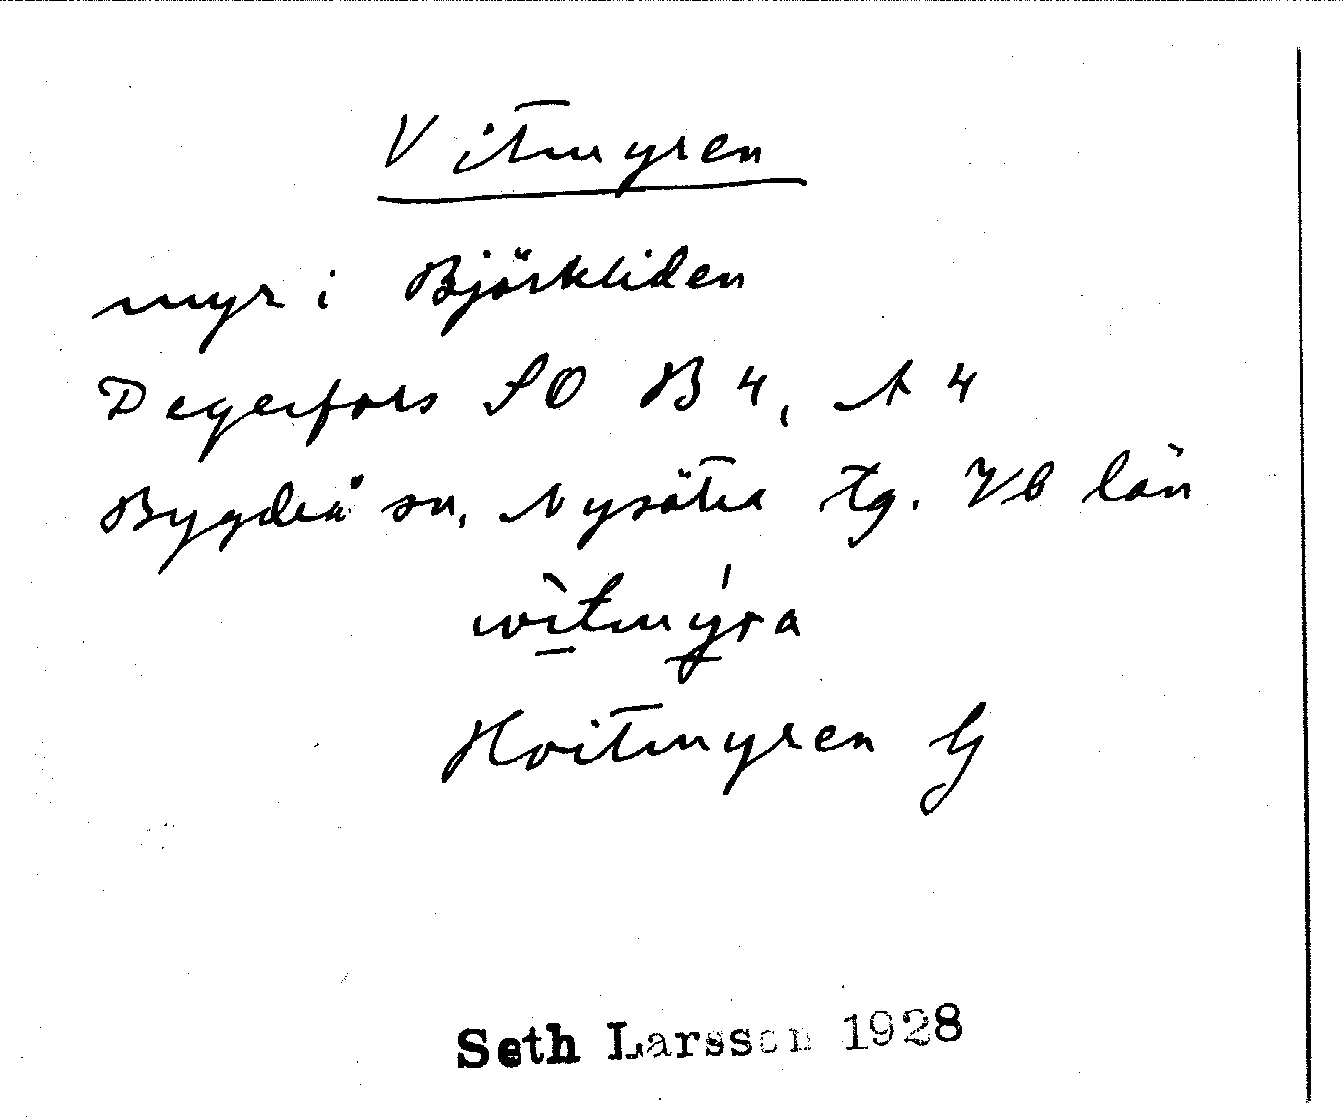 Vitmyren
myr i Björkliden
Degerfors SO B 4, A 4
Bygdeå sn, Nysätra tg. Vb län
wìtmýra
Hvitmyren G
Seth Larsson 1928